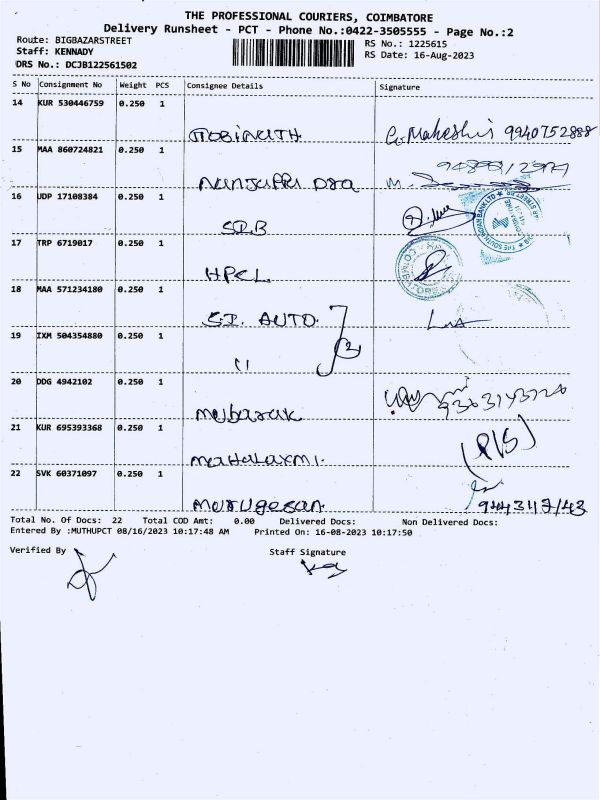 THE PROFESSIONAL COURIERS, COIMBATORE
Delivery Runsheet - PCT - Phone No.:0422-3505555 - Page No.:2
Route: BIGBAZARSTREET
Staff: KENNADY
DRS No.: DCJB122561502
RS No.: 1225615
RS Date: 16-Aug-2023
S No Consignment No Weight PCS Consignee Details Signature
14 KUR 530446759 0.250 1
Gobinath G. Maheshis 9940752888
15 MAA 860724821 0.250 1
Nunjappa M.
16 UDP 17108384 0.250 1
SIB
THE SOUTH INDIAN BANK LTD
17 TRP 6719017 0.250 1
HPCL
18 MAA 571234180 0.250 1
S.I. AUTO.
19 IXM 504354880 0.250 1
11 2
20 DDG 4942102 0.250 1
Mubarak
21 KUR 695393368 0.250 1
Mahalaxmi. (P/S)
22 SVK 60371097 0.250 1
Murugesan
Total No. Of Docs: 22 Total COD Amt: 0.00 Delivered Docs: Non Delivered Docs:
Entered By :MUTHUPCT 08/16/2023 10:17:48 AM Printed On: 16-08-2023 10:17:50
Verified By Staff Signature